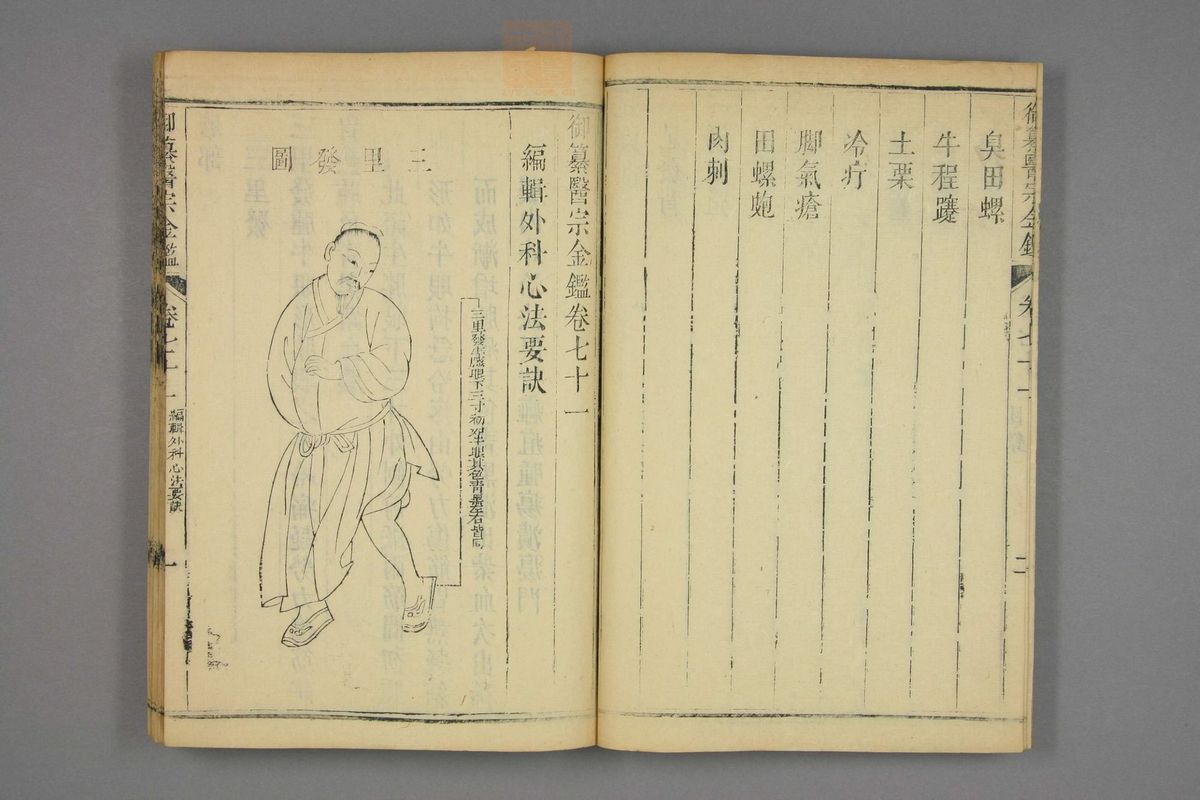 御纂醫宗金鑑
卷七十一
二
臭田螺
牛程蹇
土栗
冷疔
脚氣瘡
田螺皰
肉刺
御纂醫宗金鑑卷七十一
編輯外科心法要訣
三里發圖
三里發生膝眼下三寸初如牛眼其色青黑左右皆同
御纂醫宗金鑑
卷七十一
編輯外科心法要訣
一